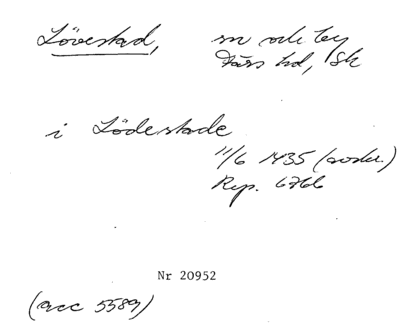 Lövestad, sn och by
Färs hd, Sk
i Lödestade
11/6 1435 (avskr.)
Rep. 6766
Nr 20952
(acc 5589)